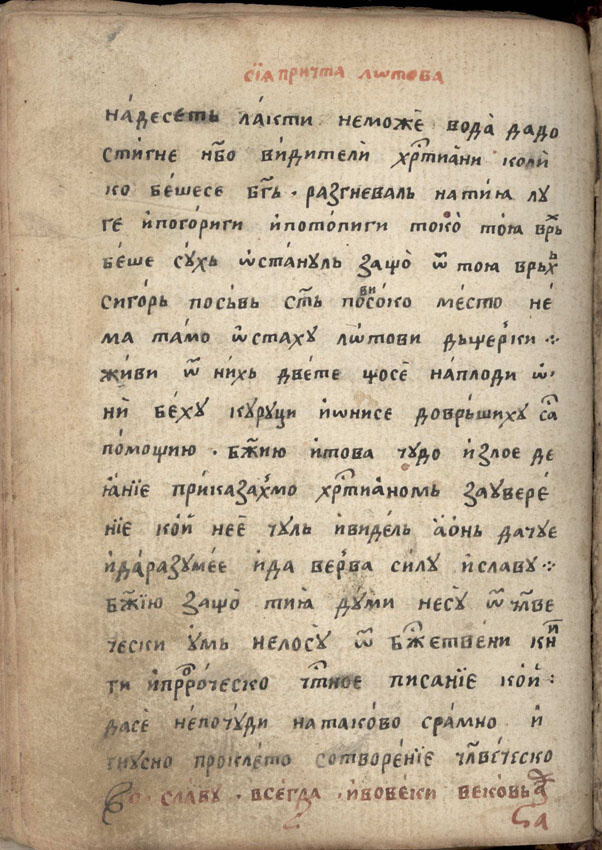 сїѧ причта лѡтова
на́десеть ла́кти неможѐ вода̀ дадо
сти́гне нб҃о ви́дители хрⷭ҇тиа́ни коли́
ко бе́шесе бг҃ь · разгневаль натиꙗ лу
ге и҆погорѝги и҆пото́пиги токо̀ тоꙗ врⷯь
бе́ше су́хь ѡ҆ста́нуль защо̀ ѿ тоꙗ врьⷯ
сиго́рь посьвь сть посоⷡ҇ико ме́сто не́
ма та́мо ѡ҆стаху лѡ́тови дьщерки ·:·
жи́ви ѿ ни́хь две́те щосѐ на́плоди ѡ҆
нѝ бе́ху куруци и҆ѡнисе довръшиху са
по́мощию · бж҃ию и҆това чудо и҆злое де
ꙗ҆нїе приказахмо хрⷭ҇тиа́номь заувере́
нїе ко́й неѐ чуль и҆виде́ль а҆онь дачуе
и҆да́разуме́е и҆да верⷪ҇ва силу и҆славу ·:·
бж҃їю защо̀ тиꙗ ду́ми несу̀ ѿ чл҃ве
чески у҆мь нелосу̀ ѿ бжⷭ҇етве́ни книⷢ҇
ги и҆прⷪ҇ро́ческо чтⷭ҇ное писанїе ко́й :
дасѐ непочу́ди натако́во сра́мно и҆
гнусно прокле́то сотворе́нїе чл҃ве́ческо
во славу · всегда · и҆вовеки вековь а҃